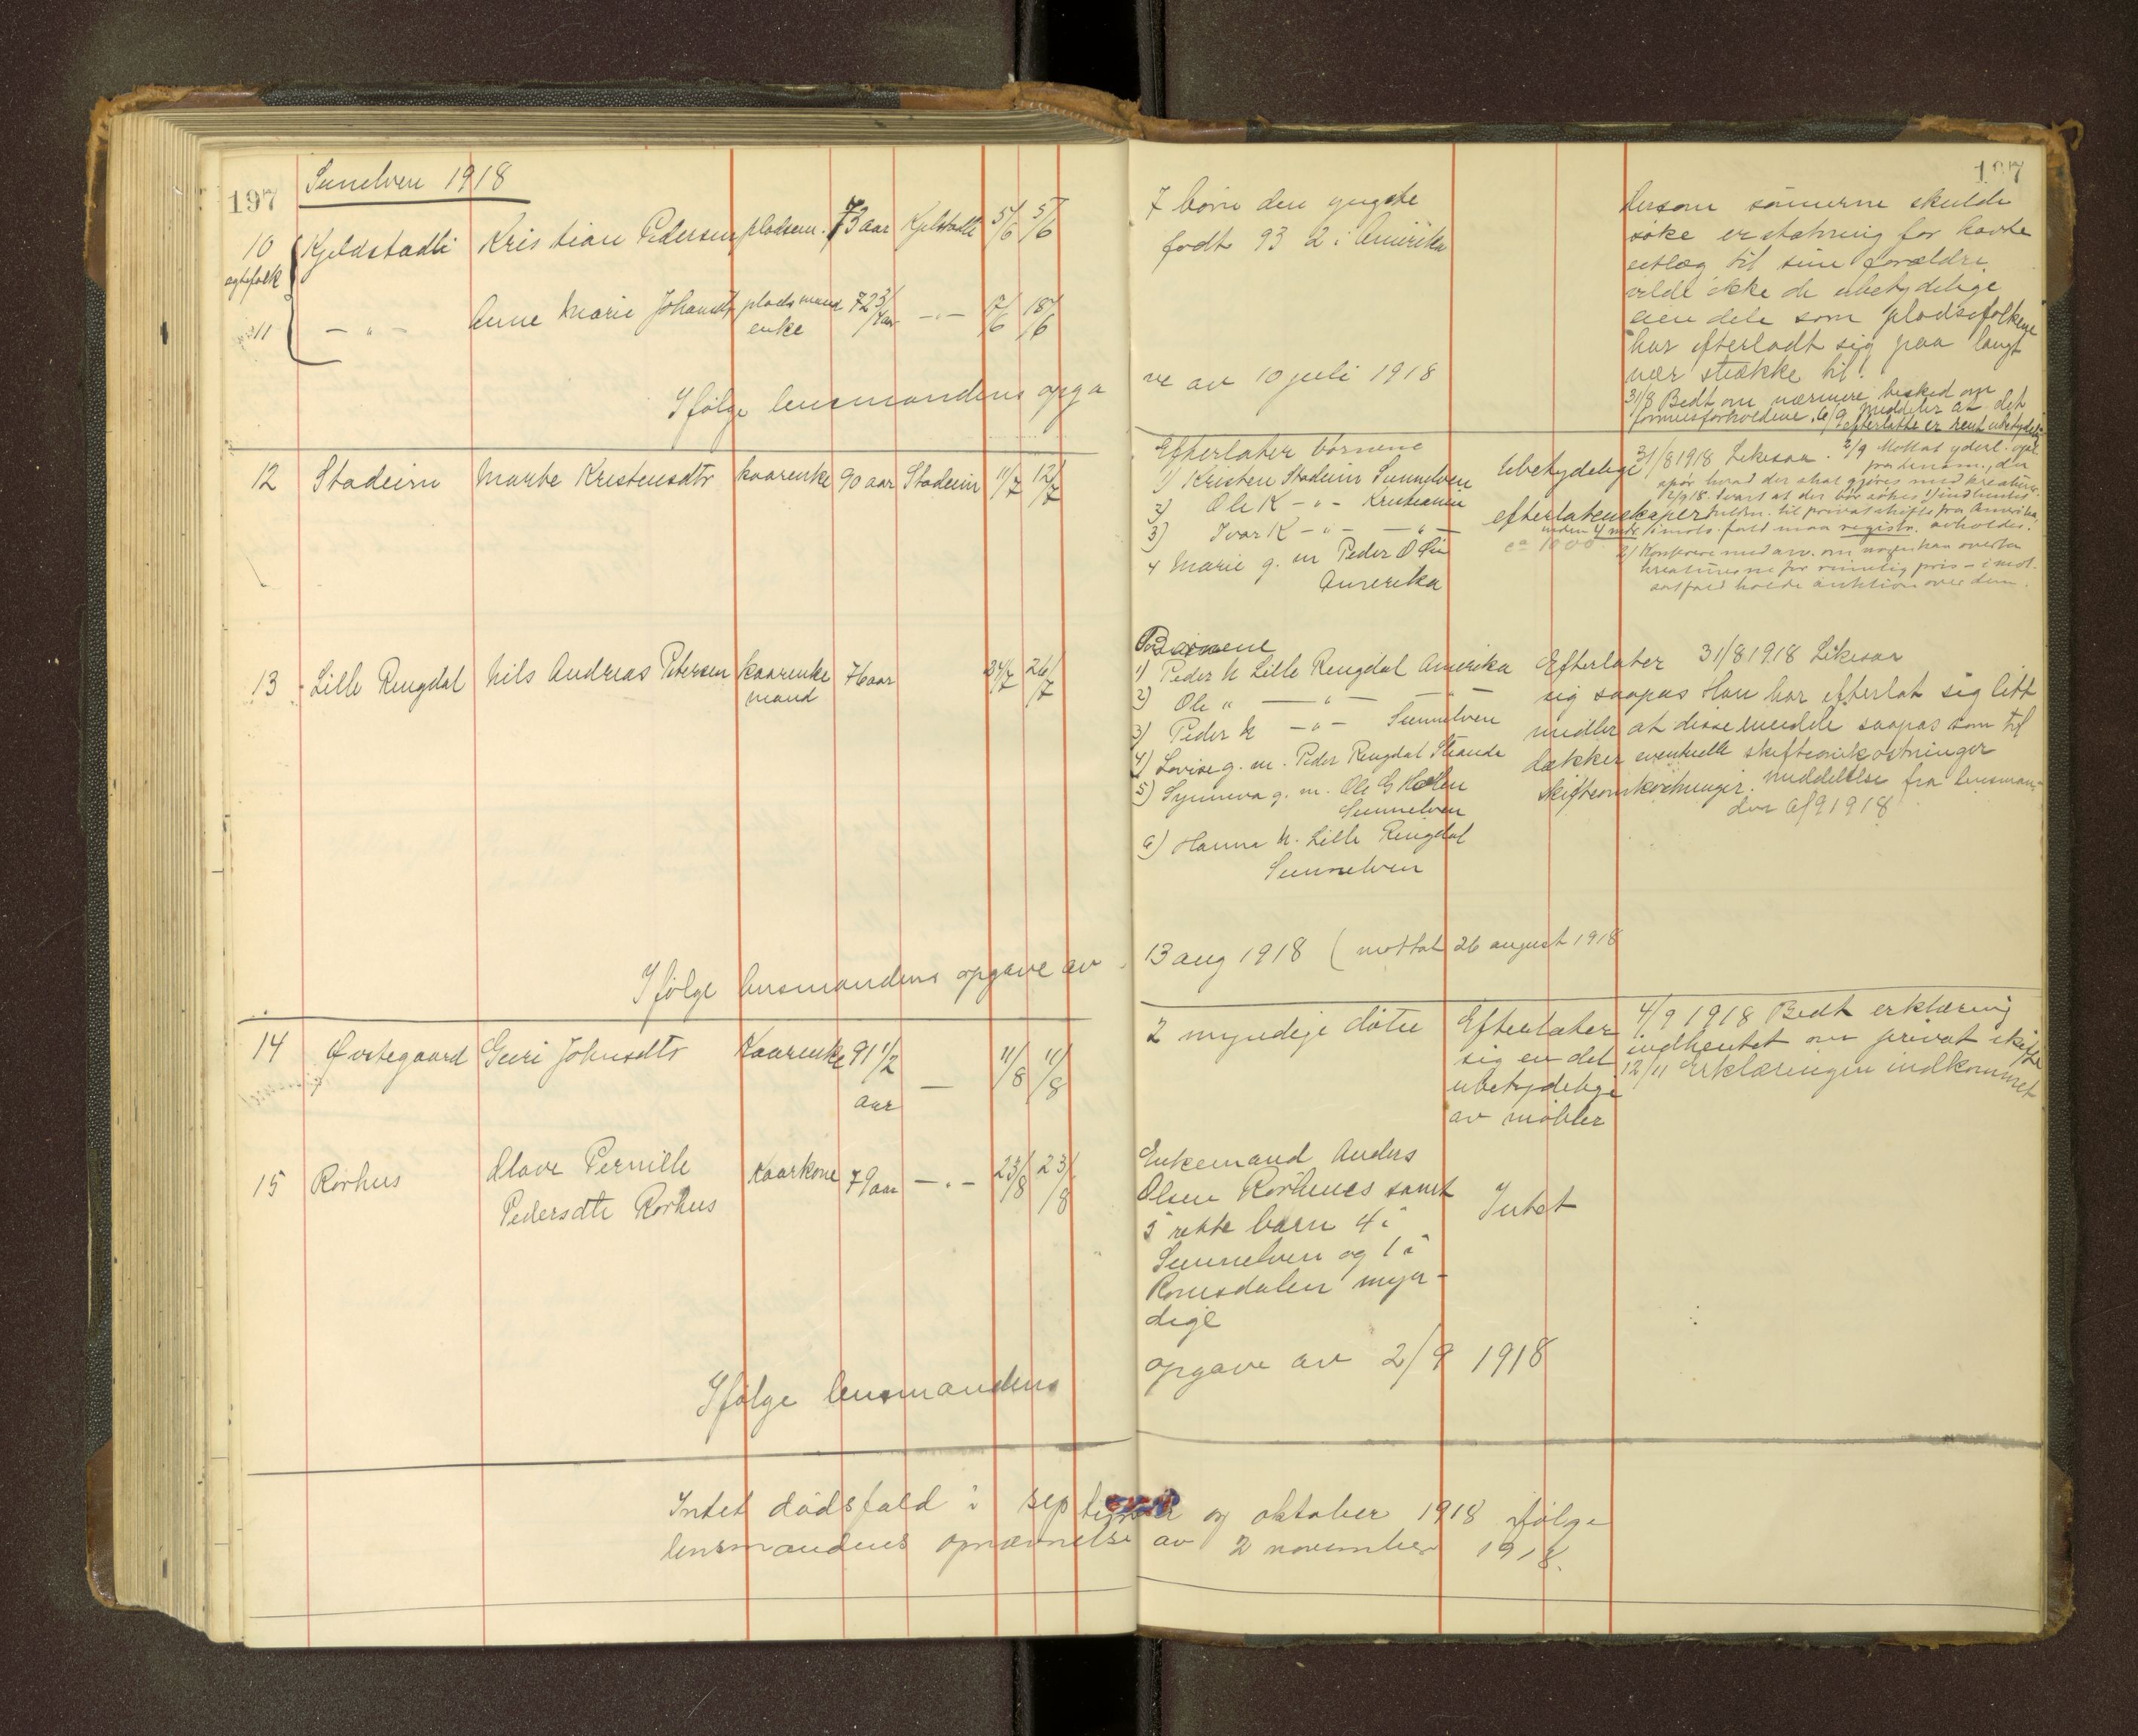 197 Sunelven 1918
197
10 Kjeldstadli Kristian Pedersen pladsm. 73 aar Kjelstadli 5/6 5/6
7 börn den yngste
födt 93 2 i Amerika
egtefolk
11 - " - Anne Marie Johansdt pladsmand 72 3/4 aar - " - 17/6 18/6
enke
Dersom sönnerne skulde
söke erstatning for havte
utlæg til sine forældre
vilde ikke de ubetydelige
eiendele som pladsfolkene
har efterladt sig paa langt
nær strække til.
31/8 Bedt om nærmere besked om
formuesforholdene. 6/9 meddeler at det
efterlatte er rent ubetydelig
Ifölge lensmandens opgave av 10 juli 1918
12 Stadeim Marte Kristensdtr kaarenke 90 aar Stadeim 11/7 12/7
Efterlater börnene
1) Kristen Stadeim Sunnelven
2) Ole K - " - Kristiania
3) Ivar K - " - - " -
4 Marie g. m Peder O
Amerika
Ubetydelige
efterlatenskaper
ca 1000
31/8 1918 Likesaa. 2/9 Mottat yderl. opl.
fra lensm., der
spör hvad der skal gjöres med kreaturer.
12/9 18. Svart at der bör sökes 1) indhentes
fuldm. til privat skifte fra Amerika,
inden 4 mdr. imots. fald maa registr. avholdes.
2) Konferere med arv. om nogen kan overta
kreaturerne for rimelig pris - i mot-
satfald holde auktion over dem.
13 Lille Ringdal Nils Andreas Petersen kaarenke 76 aar 24/7 26/7
mand
Börnene
1) Peder N Lille Ringdal Amerika
2) Ole " - " - "
3) Peder N - " - Sunnelven
4) Lovise g. m. Peder Ringdal Stranda
5) Synneva g. m. Ole G Hollen
Sunnelven
6) Hanna N. Lille Ringdal
Sunnelven
Efterlater
sig saapas
midler at disse
dækker eventuelle
skifteomkostninger.
31/8 1918 Likesaa
Han har efterlat sig litt
mindele saapas som til
skifteomkostninger
meddelelse fra lensman-
den 6/9 1918
Ifölge lensmandens opgave av 13 aug 1918 (mottat 26 august 1918
14 Övstegaard Guri Johnsdtr Kaarenke 91 1/2 aar - 11/8 11/8
2 myndige dötre
Efterlater
sig en del
ubetydelige
av möbler
4/9 1918 Bedt erklæring
indhentet om privat skifte
12/11 Erklæringen indkommet
15 Rörhus Olave Pernille Kaarkone 79 aar - " - 23/8 23/8
Pedersdtr Rorhus
Enkemand Anders
Olsen Rörhues samt
5 rekte barn 4 i
Sunnelven og 1 i
Romsdalen myn-
dige
Intet
Ifölge lensmandens opgave av 2/9 1918
Intet dödsfald i september og oktober 1918 ifölge
lensmandens opnævnelse av 2 november 1918.